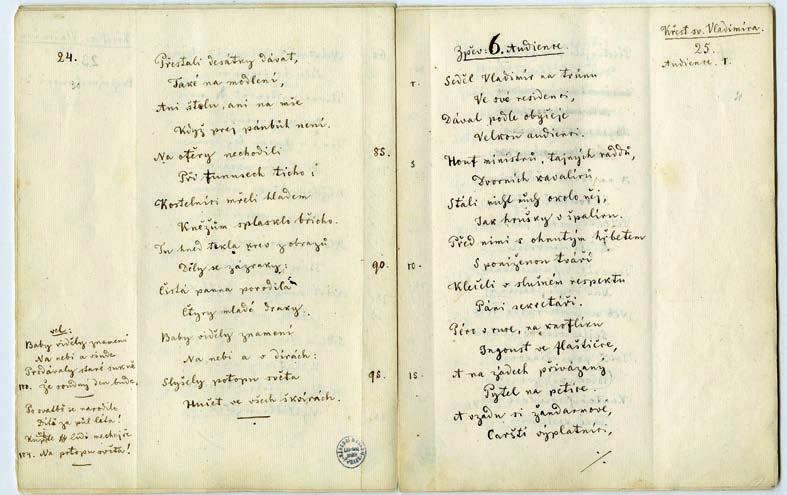 24.
Přestali desátky dávat,
Také na modlení,
Ani štolu, ani na mše
Když prej pánbůh není.
Na ofěry nechodili
85.
Při funusech ticho;
Kostelníci mřeli hladem
Kněžům splasklo břicho.
Tu hned tekla krev z obrazů
Děly se zázraky;
90.
Čistá panna porodila
Čtyry mladé draky.
Baby viděly znamení
Na nebi a v dírách:
Slyšely potopu světa
95.
Hučet ve všech škvírách.
vel:
Baby viděly znamení
Na nebi a všude
Prodávaly staré sukně
Že soudný den bude.
Po svatbě se narodilo
Dítě za půl léta!
lidi nechejte
Na potopu světa!
Křest sv. Vladimíra.
25.
Audience. 1.
Zpěv: 6. Audience.
1.
Seděl Vladimír na trůnu
Ve své residenci,
Dával podle obyčeje
Velkou audienci.
5
Houf ministrů, tajných raddů,
Dvorních kavalírů
Stáli okolo něj,
Jak hrušky v špalíru.
Před nimi s ohnutým hřbetem
10.
S poníženou tváří
Klečeli v slušném respektu
Páni sekretáři.
Péro v ruce, na knoflíku
Ingoust ve flaštičce,
15.
A na zádech přivázaný
Pytel na petice.
A vzadu si žandarmové,
Carští výplatníci,
./.